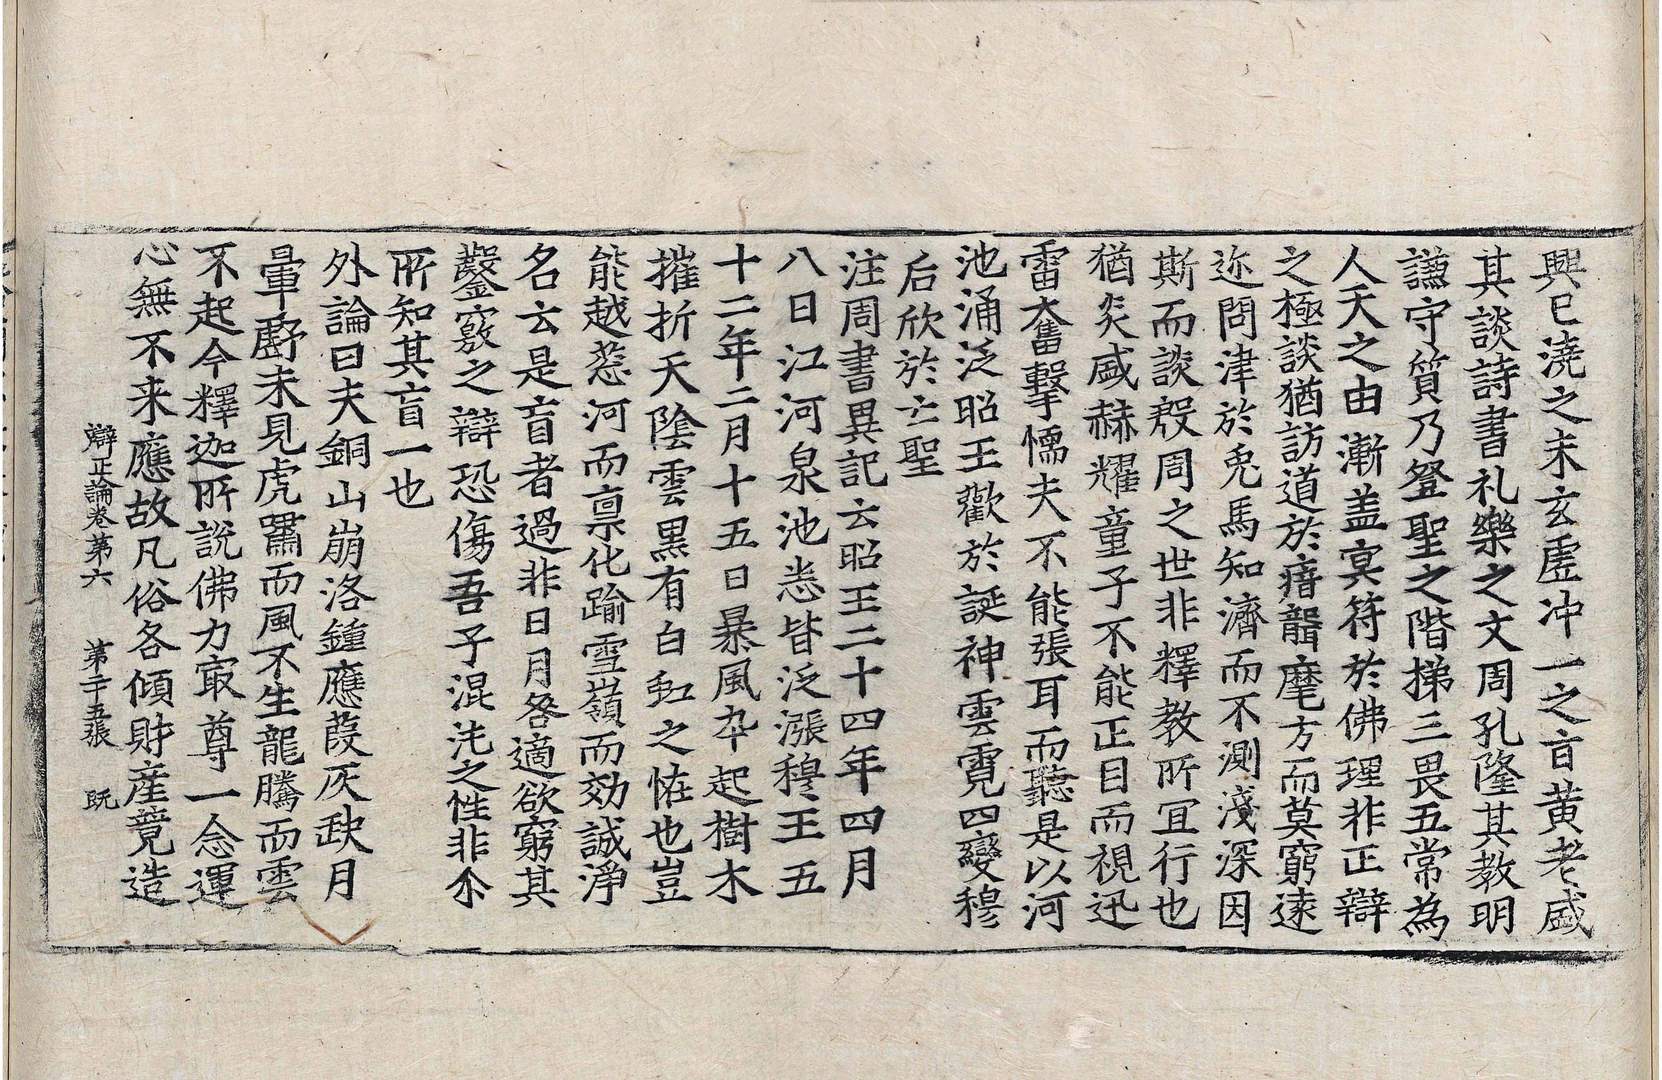 興已澆之末玄虛冲一之旨黃老盛
其談詩書礼樂之文周孔隆其教明
謙守質乃登聖之階梯三畏五常為
人天之由漸盖冥符於佛理非正辯
之極談猶訪道於瘖聾麾方而莫窮遠
迩問津於兎馬知濟而不測淺深因
斯而談殷周之世非釋教所宜行也
猶炎威赫耀童子不能正目而視迅
雷奮擊懦夫不能張耳而聽是以河
池涌泛昭王歡於誕神雲霓四變穆
后欣於亡聖
注周書異記云昭王二十四年四月
八日江河泉池悉皆泛漲穆王五
十二年二月十五日暴風卒起樹木
摧折天陰雲黑有白虹之恠也豈
能越葱河而禀化踰雪嶺而効誠淨
名云是盲者過非日月咎適欲窮其
鑿竅之辯恐傷吾子混沌之性非尒
所知其盲一也
外論曰夫銅山崩洛鍾應葭灰缺月
暈虧未見虎嘯而風不生龍騰而雲
不起今釋迦所說佛力寂尊一念運
心無不来應故凡俗各傾財産競造
辯正論卷第六　第二十五張　旣